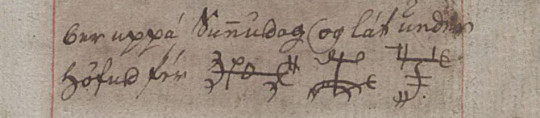 ber uppá Sunnudag og lát under
höfud þér